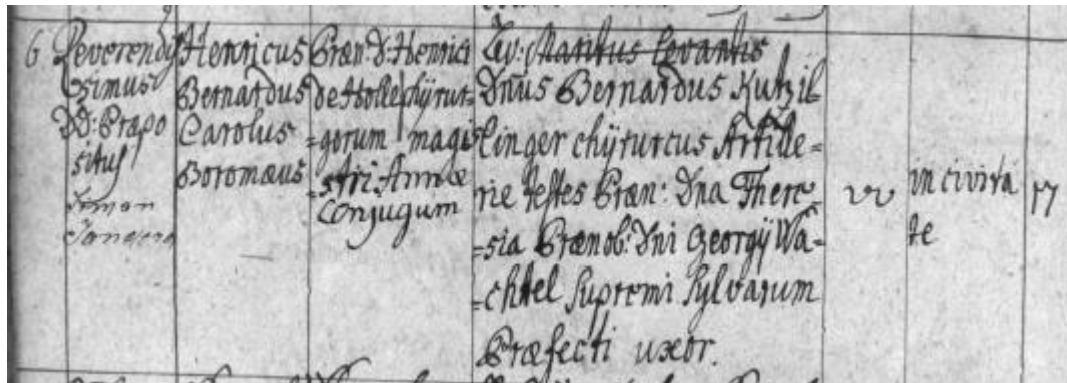 6 Reverendis
simus
DD: Præpo
situs
Simon
Henricus
Bernardus
Carolus
Boromæus
Præn: D: Henrici
de Holle chÿrur=
=gorum magi
=stri: Annæ
Conjugum
Lev: Maritus Levantis
Dnus Bernardus Kutzil=
linger chÿrurcus Artille=
rie testes Præn: Dna There=
=sia Prænob: Dni Georgÿ Wa=
=chtel supremi sylvarum
Præfecti uxor.
in civita
te
17